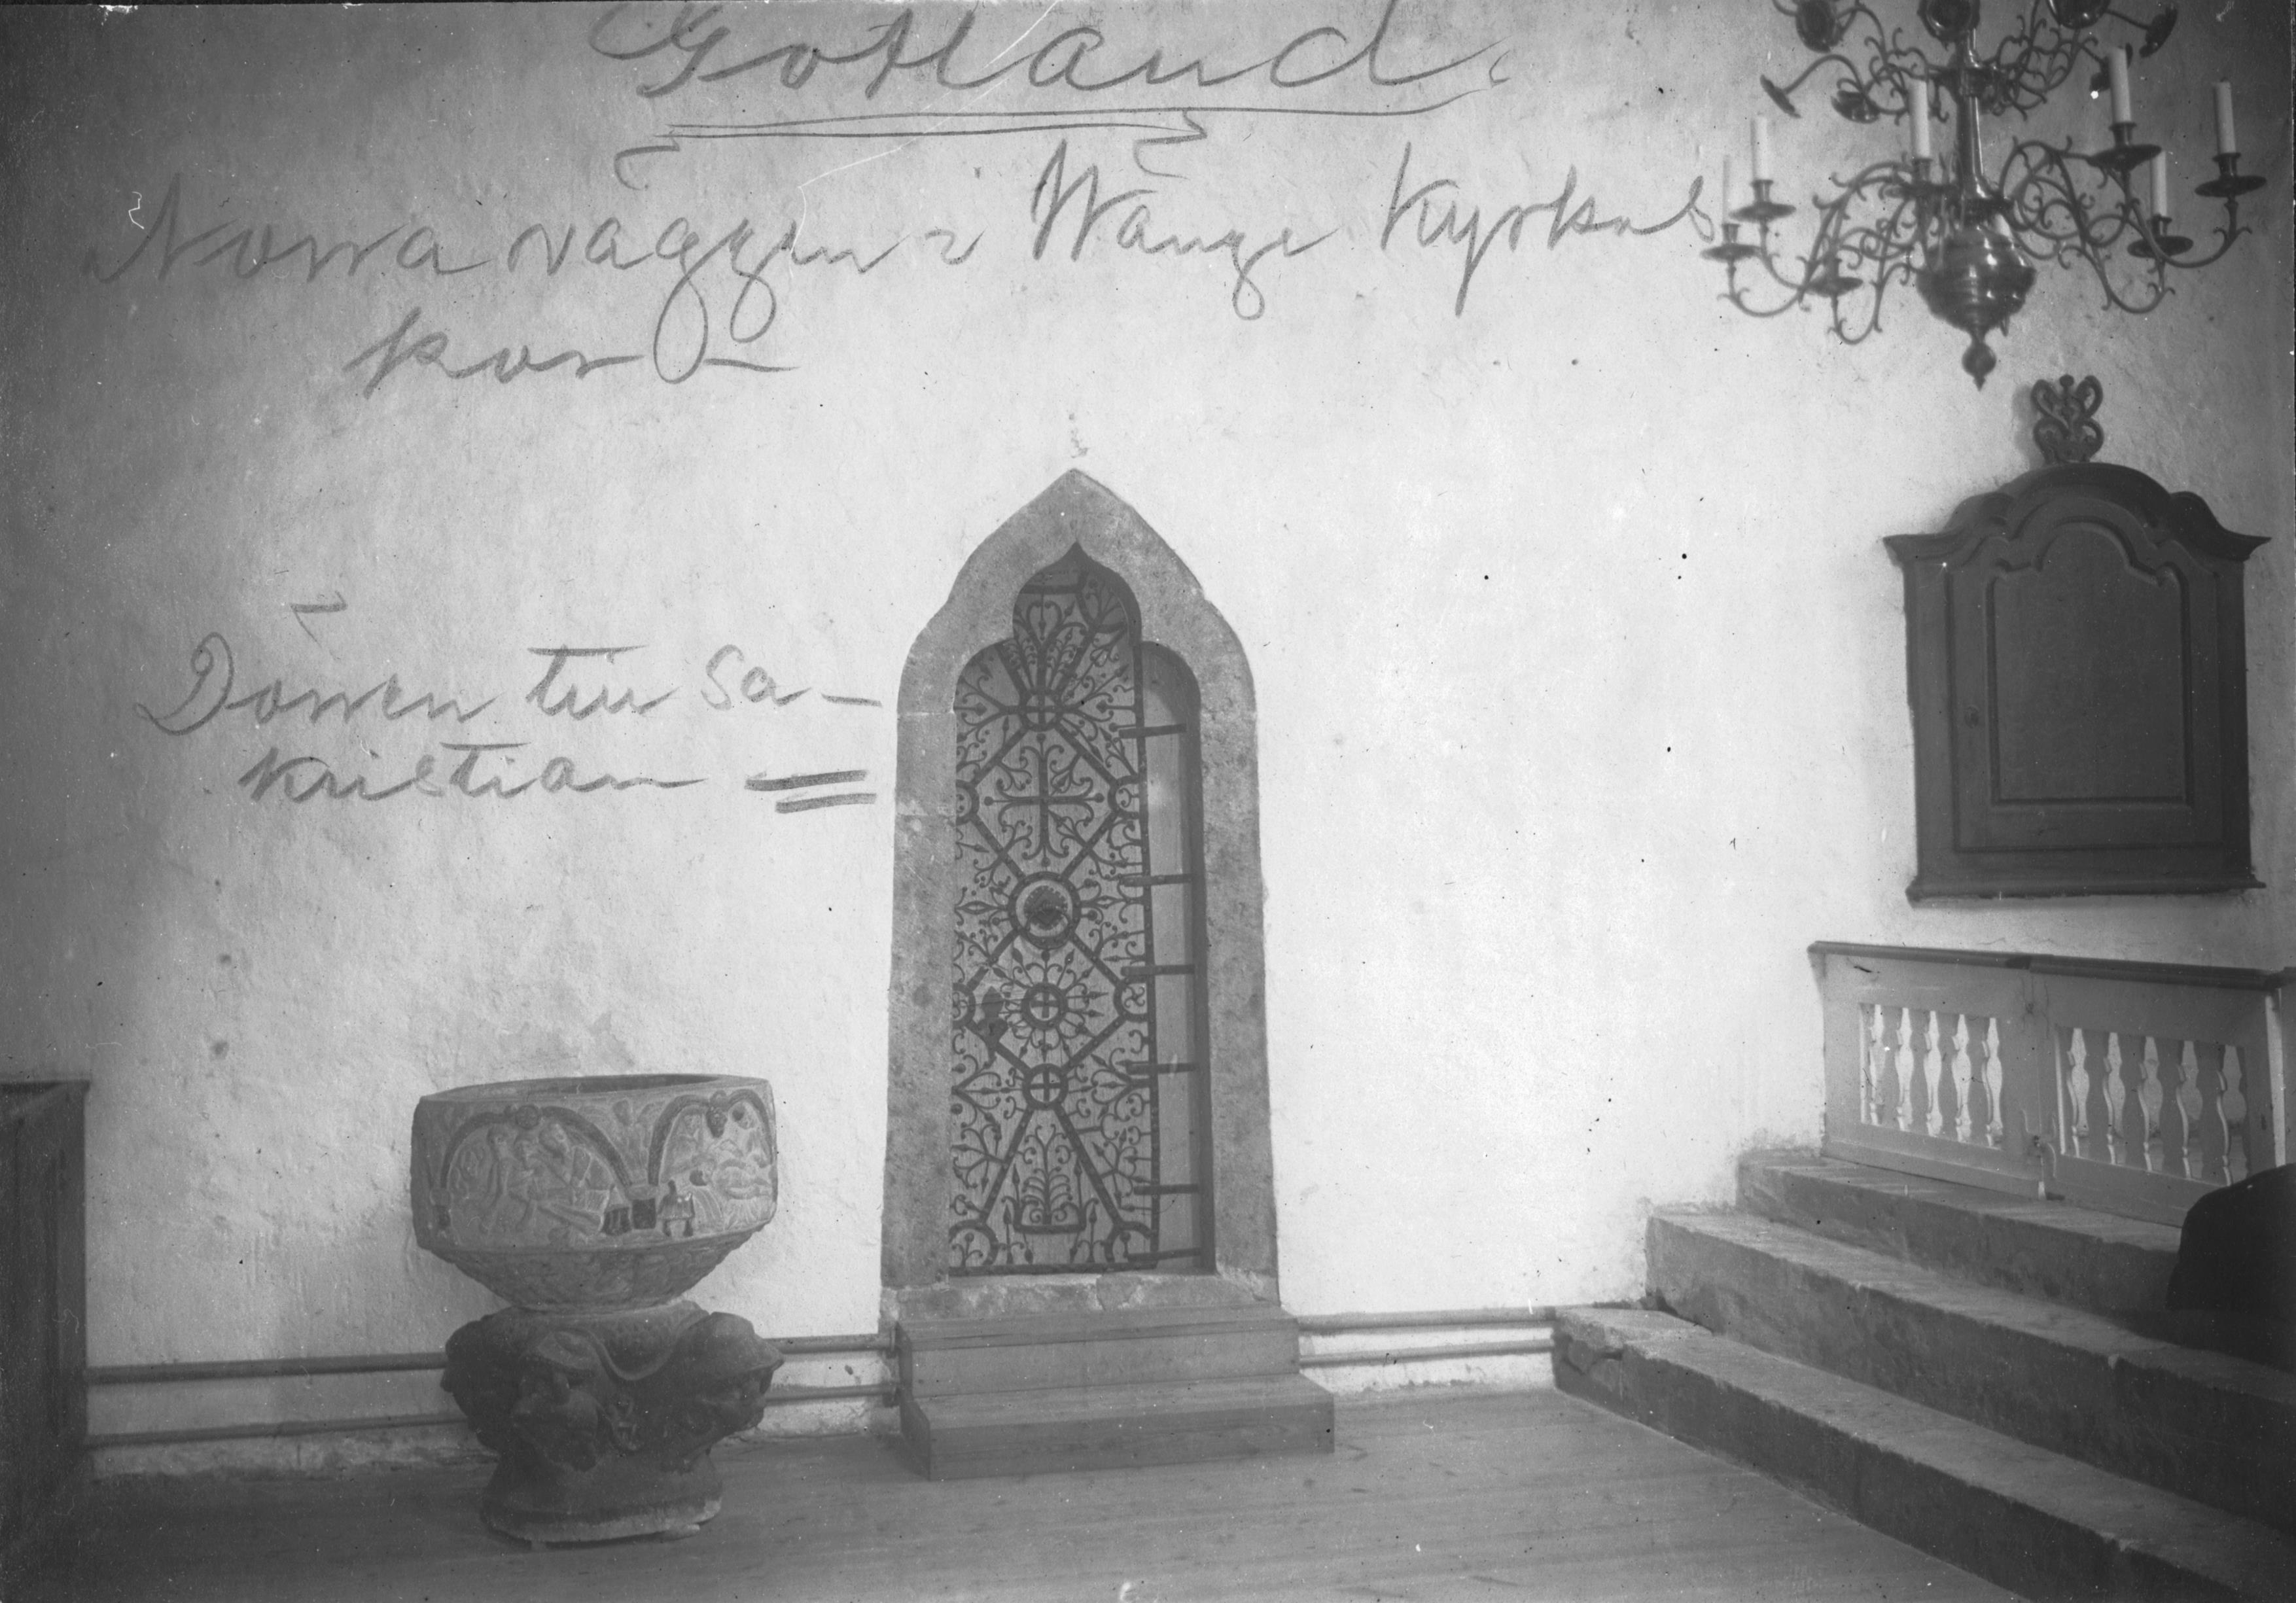 Gotland.
Norra väggen i Wänge Kyrkas
kor —
Dörren till Sa-
kristian =